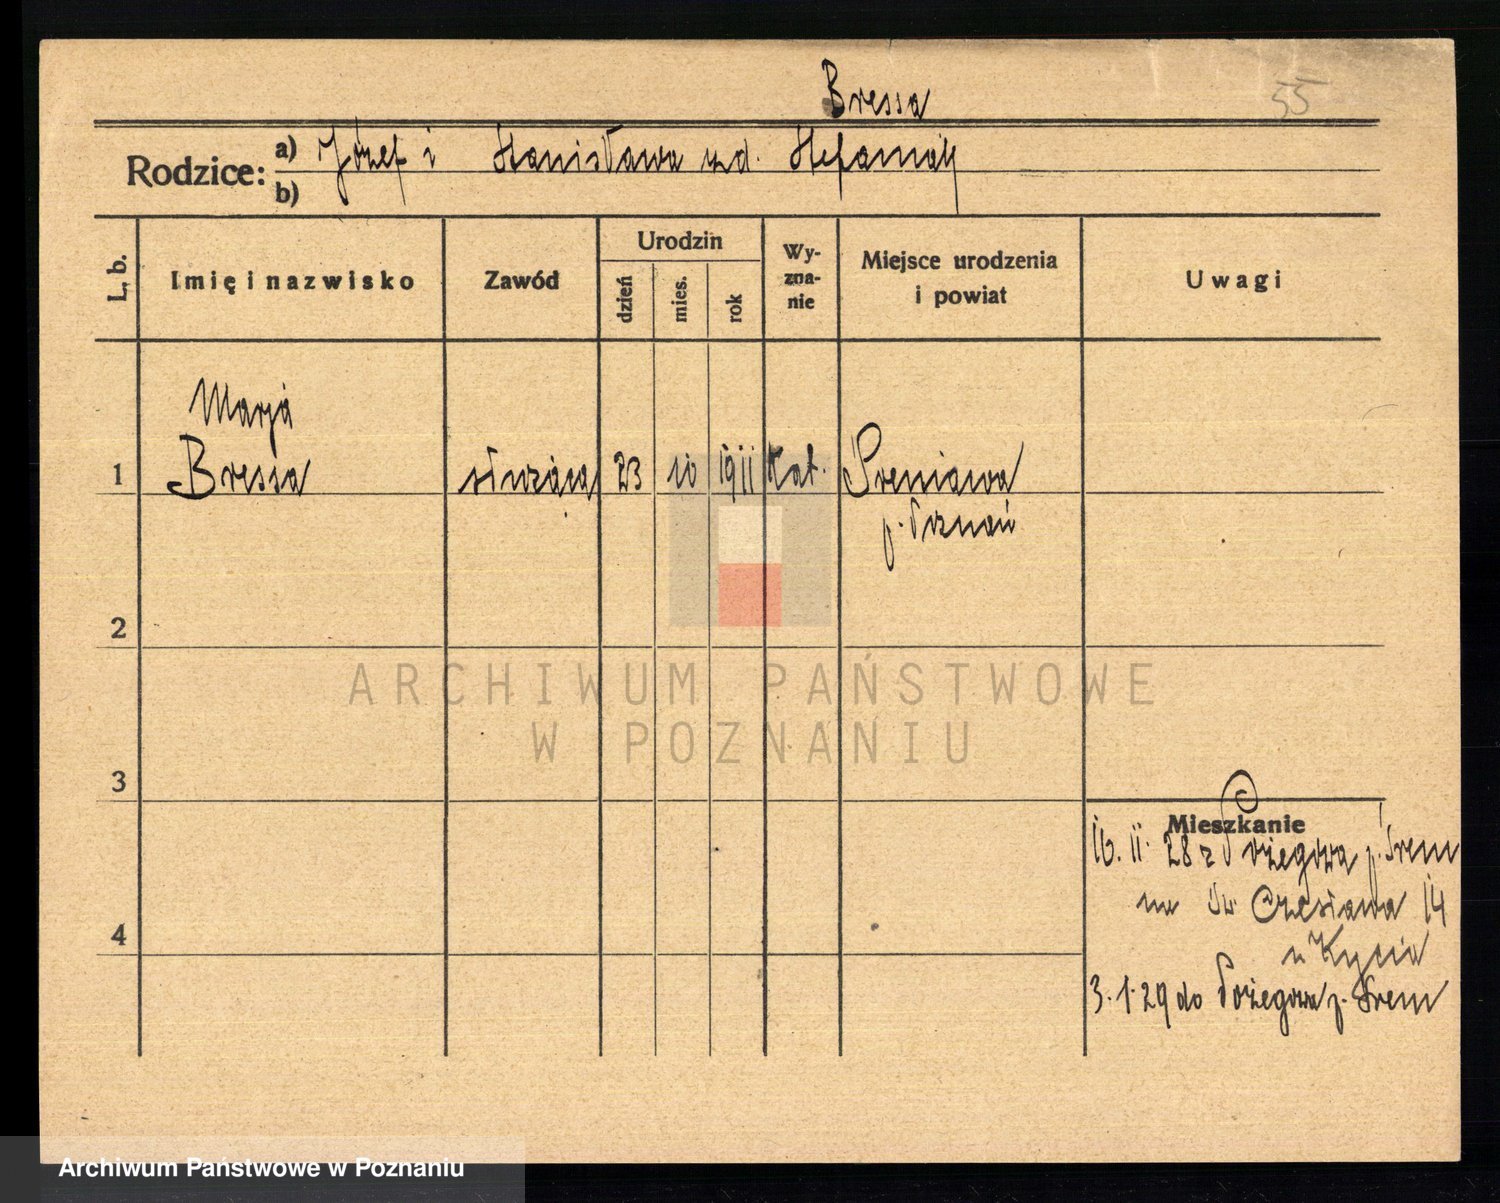 Bressa
55
Rodzice: a) Józef i Stanisława uzd. Stefaniak
b)
L. b.
Imię i nazwisko
Zawód
Urodzin
dzień
mies.
rok
Wy-
zna-
nie
Miejsce urodzenia
i powiat
Uwagi
Marja
1 Bressa służąca 23 10 1911 Kat. Sreniawa
p. Poznań
2
3
4
Mieszkanie
16. 11. 28 z Pożegowa p. Śrem
na Św. Czesława 14
u Kycia
3. 1. 29 do Pożegowa p. Śrem
ARCHIWUM PAŃSTWOWE
W POZNANIU
Archiwum Państwowe w Poznaniu